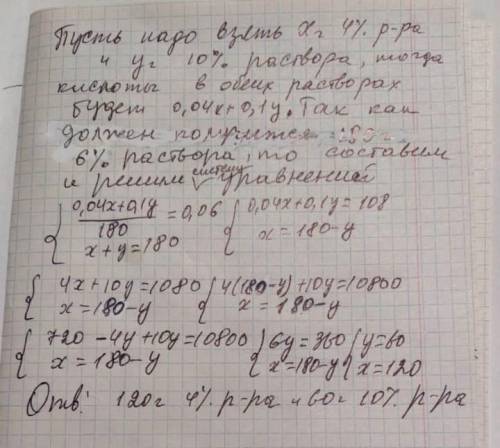 Пусть надо взять x г 4% р-ра
и y г 10% раствора, тогда
кислоты в обеих растворах
будет 0,04x+0,1y. Так как
должен получится 180 г
6% раствора, то составим
и решим систему уравнений
{ (0,04x+0,1y)/180 = 0,06 { 0,04x+0,1y = 108
x+y=180 x=180-y
{ 4x+10y=1080 { 4(180-y)+10y=10800
x=180-y x=180-y
{ 720-4y+10y=10800 { 6y=360 { y=60
x=180-y x=180-y x=120
Отв: 120г 4% р-ра и 60г 10% р-ра